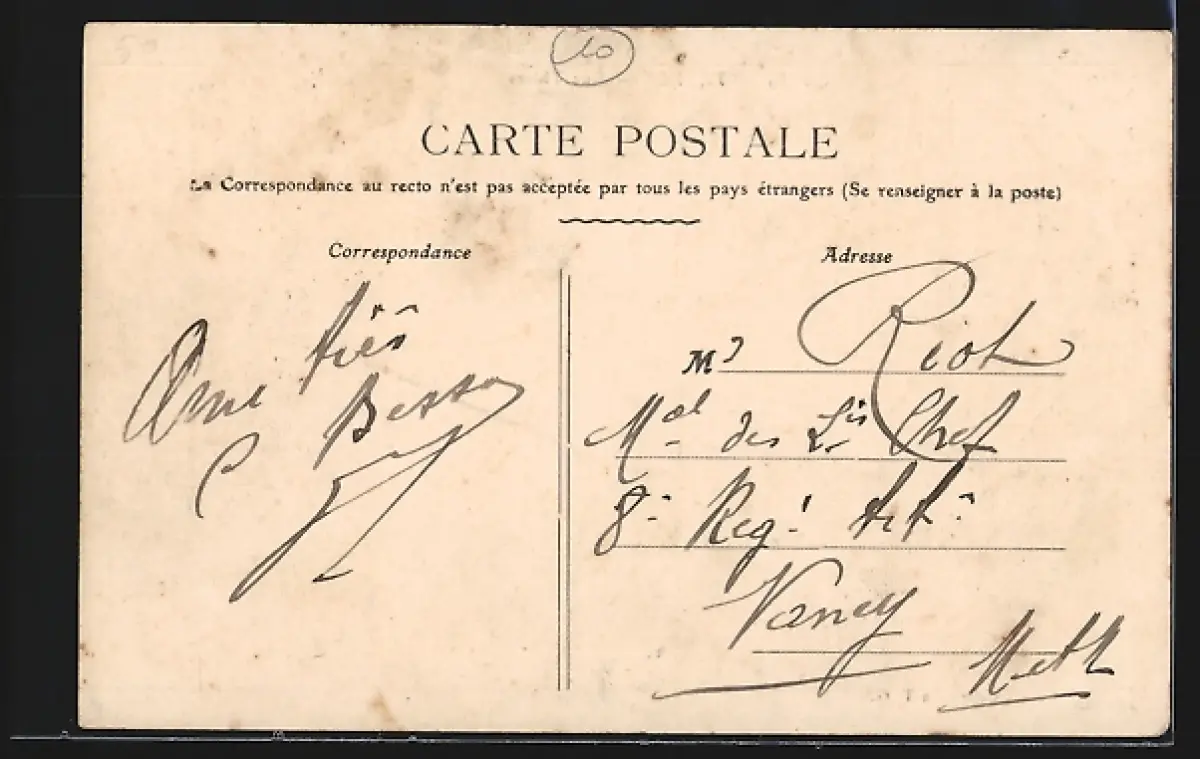 10
CARTE POSTALE
La Correspondance au recto n'est pas acceptée par tous les pays étrangers (Se renseigner à la poste)
Correspondance
Adresse
Amitiés
Mr Riot
Mal des Lis Chef
8e Regt Art
Nancy